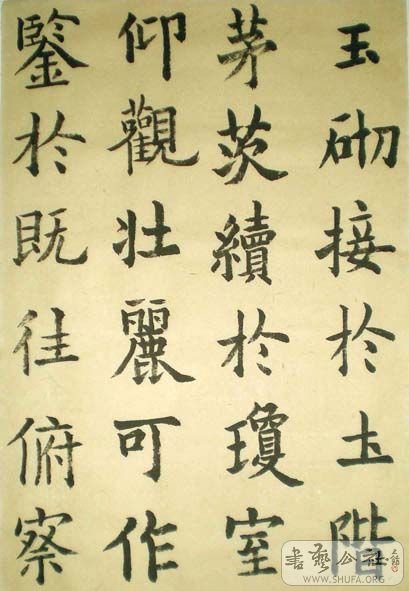 玉砌接於土階
茅茨續於瓊室
仰觀壯麗可作
鑒於既往俯察
書藝公社
WWW.SHUFA.ORG